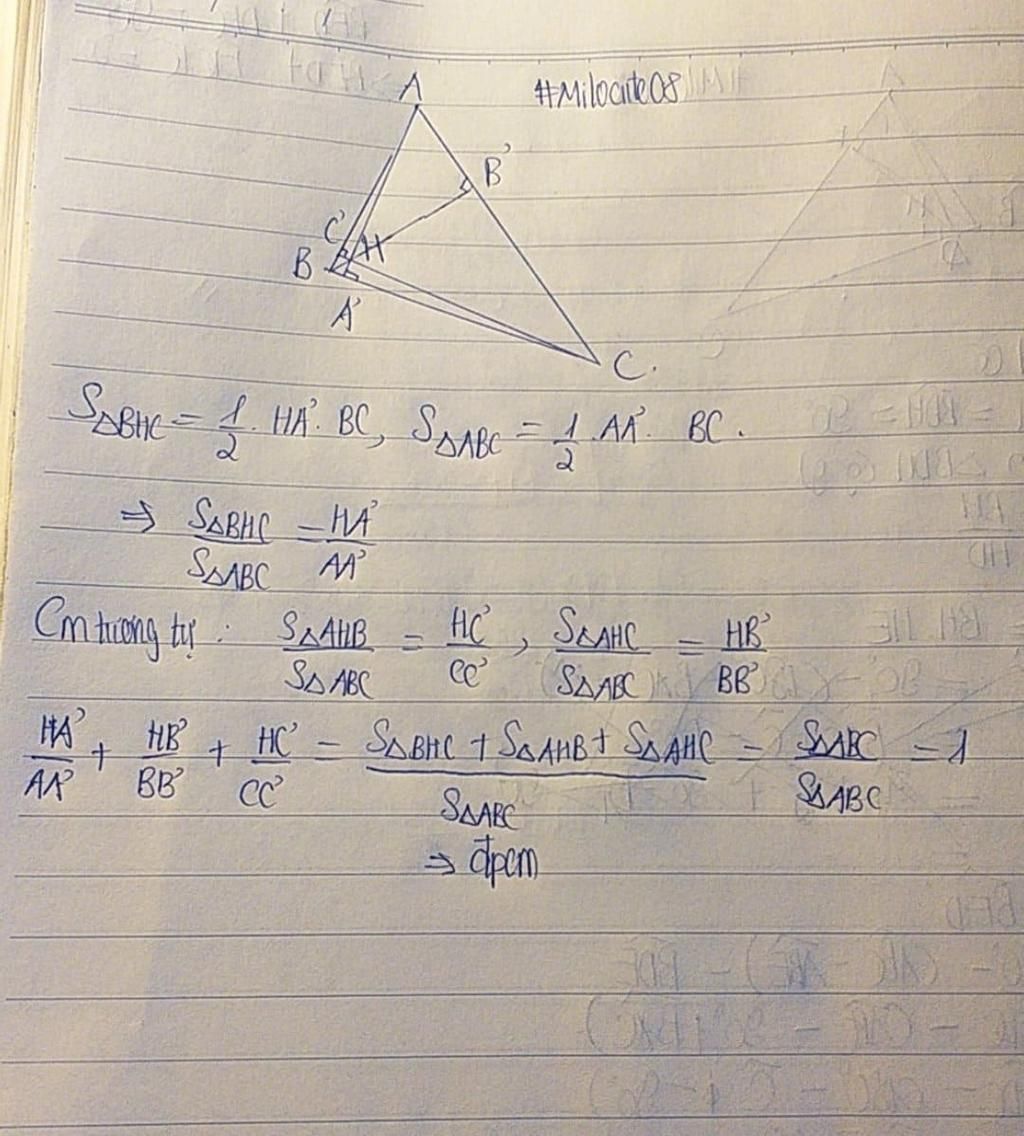 A #Milocute08
B'
C' H
B
A'
C.
S△BHC = 1/2 . HA' . BC, S△ABC = 1/2 . AA' . BC .
⇒ S△BHC/S△ABC = HA'/AA'
Cm tương tự : S△AHB/S△ABC = HC'/CC' , S△AHC/S△ABC = HB'/BB'
HA'/AA' + HB'/BB' + HC'/CC' = (S△BHC + S△AHB + S△AHC)/S△ABC = S△ABC/S△ABC = 1
⇒ đpcm